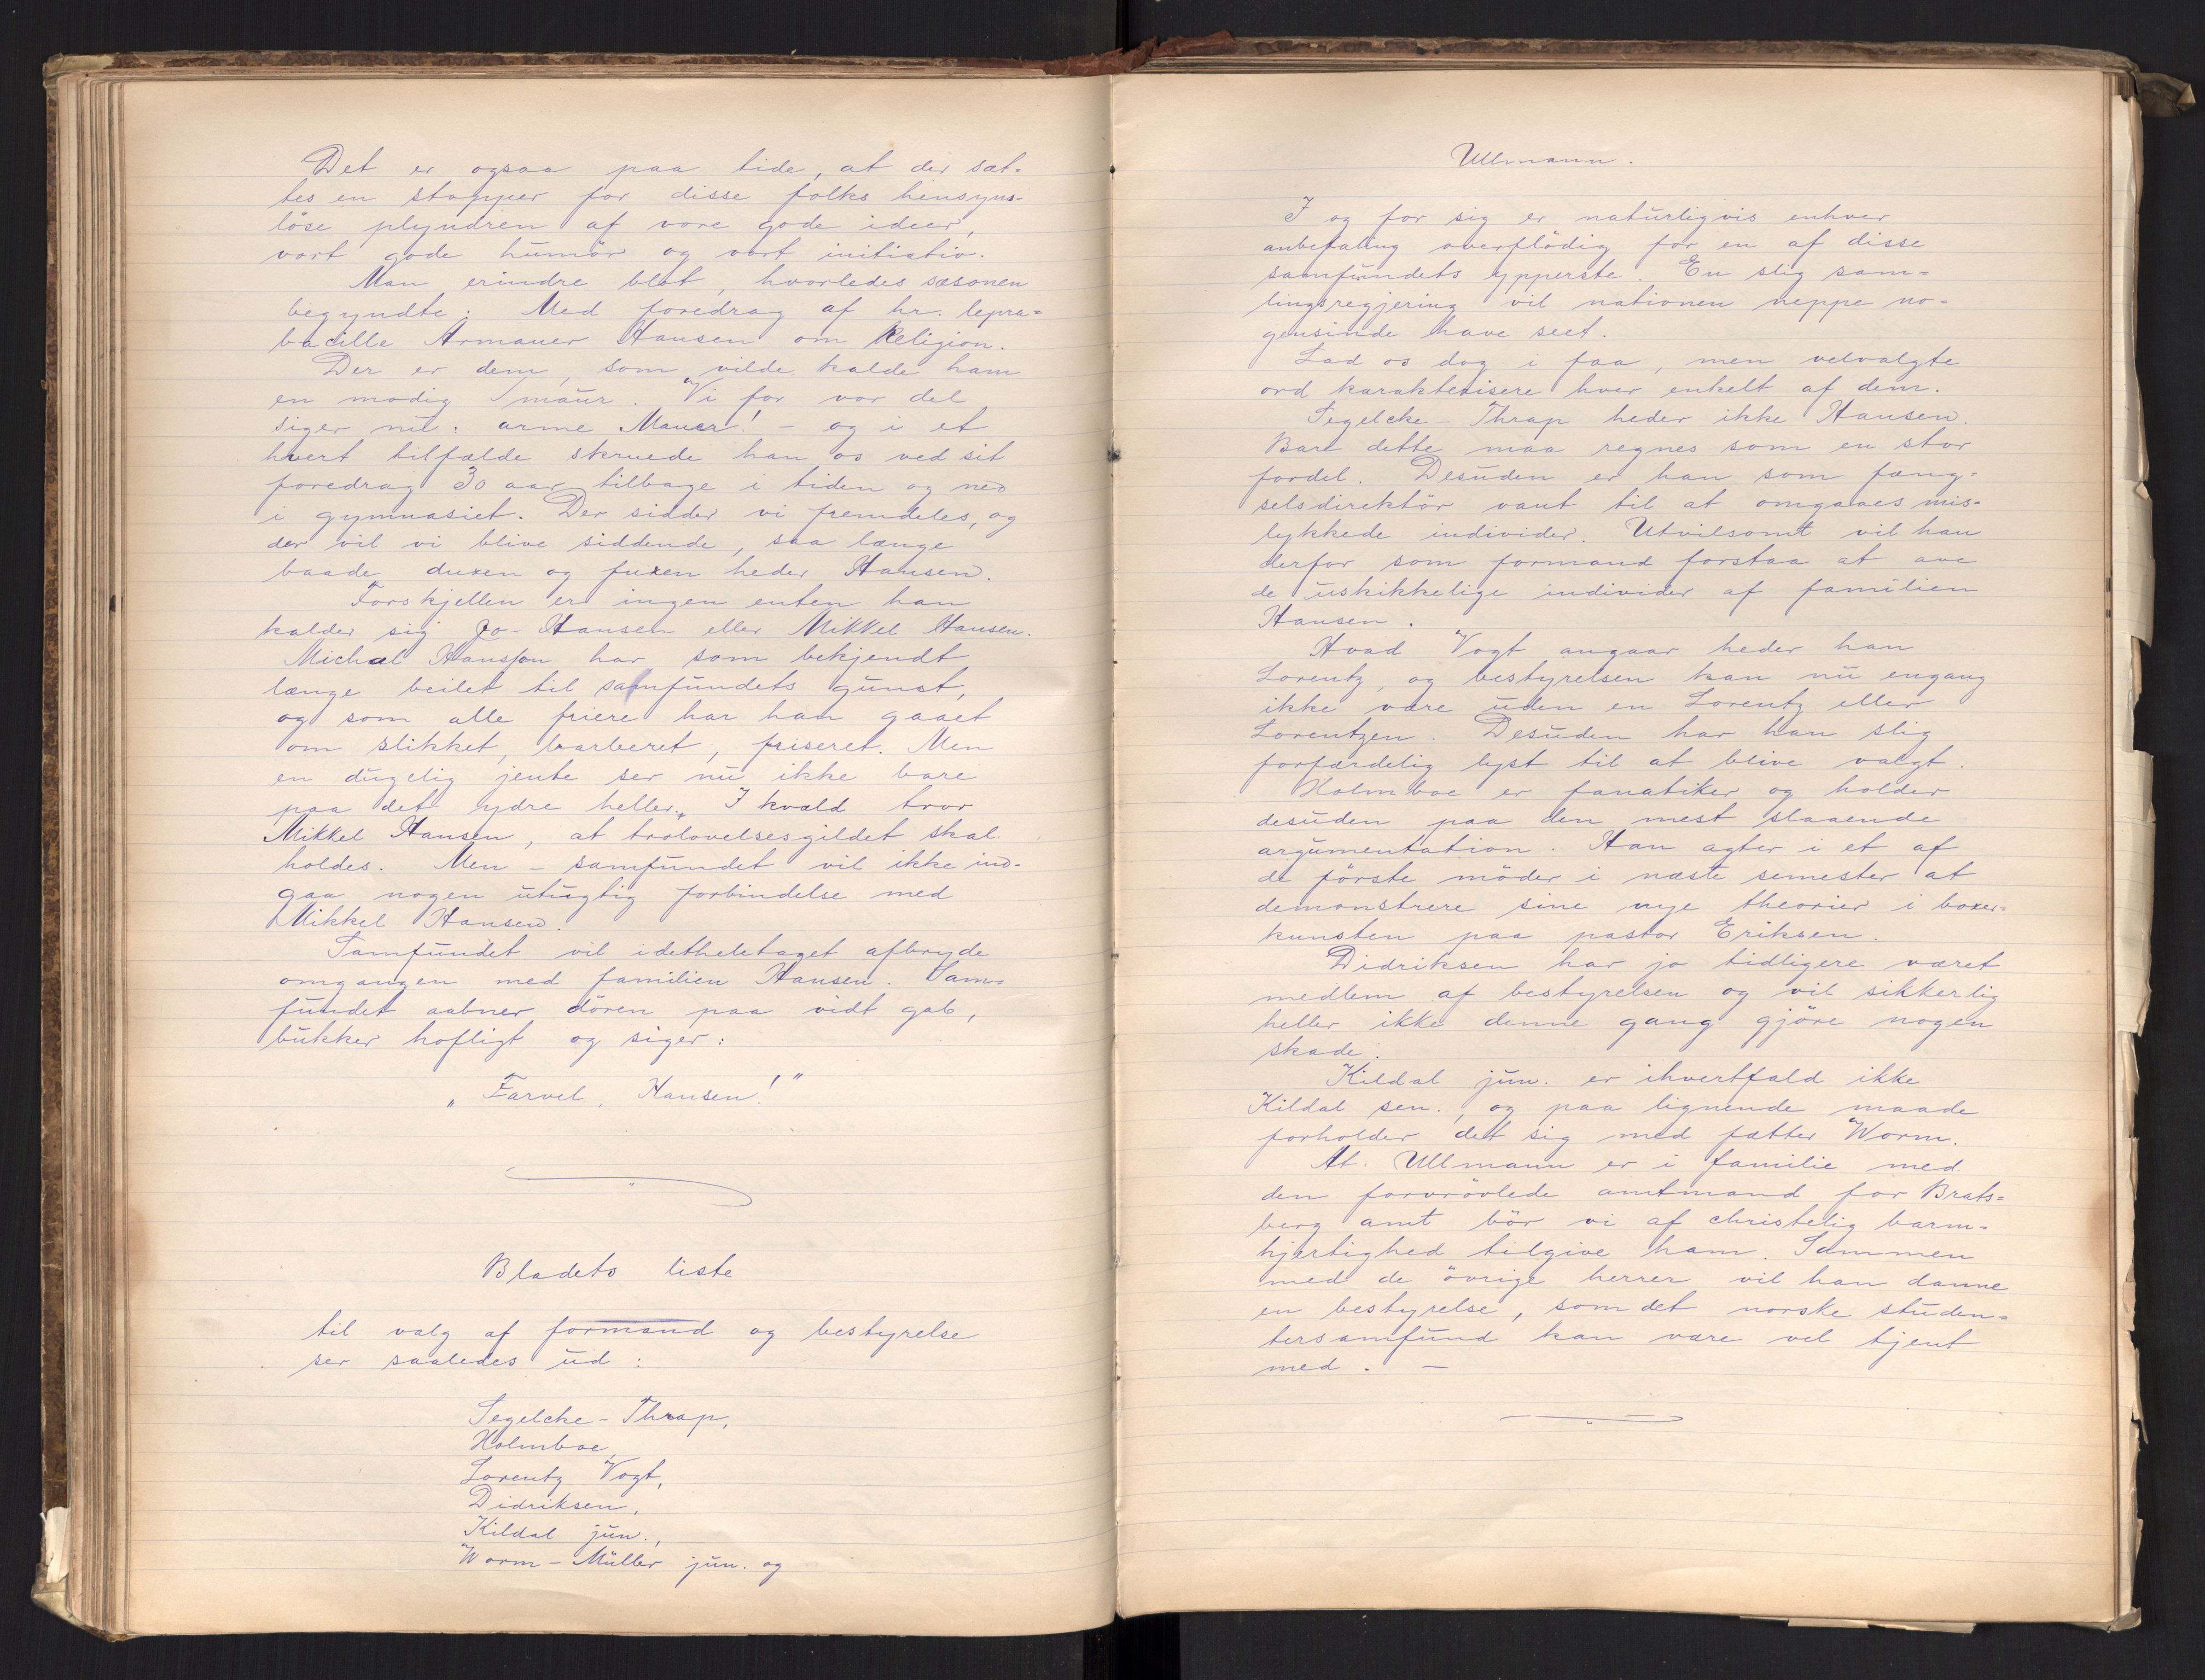 Det er ogsaa paa tide, at der sæt-
tes en stopper for disse folks hensyns-
löse plyndren af vore gode ideer,
vort gode humör og vort initiativ.
Man erindre blot, hvorledes sæsonen
begyndte: Med foredrag af hr. lepra=
bacille Armauer Hansen om Religion.
Der er dem, som vilde kalde ham
en modig maur. Vi for vor del
siger nu: arme Mauer! – og i et
hvert tilfælde skruede han os ved sit
foredrag 30 aar tilbage i tiden og ned
i gymnasiet. Der sidder vi fremdeles, og
der vil vi blive siddende, saa længe
baade duxen og fuxen heder Hansen.
Forskjellen er ingen enten han
kalder sig Jo-Hansen eller Mikkel Hansen.
Michael Hansson har som bekjendt
længe beilet til samfundets gunst,
og som alle friere har han gaaet
om slikket, barberet, friseret. Men
en dugelig jente ser nu ikke bare
paa det ydre heller. I kvæld tror
Mikkel Hansen, at trolovelsesgildet skal
holdes. Men – samfundet vil ikke ind-
gaa nogen utugtig forbindelse med
Mikkel Hansen.
Samfundet vil idetheletaget afbryde
omgangen med familien Hansen. Sam=
fundet aabner dören paa vidt gab,
bukker hofligt og siger:
„Farvel, Hansen!"
Bladets liste
til valg af formand og bestyrelse
ser saaledes ud:
Segelcke-Thrap,
Holmboe,
Lorentz Vogt,
Didriksen,
Kildal jun.,
Worm-Müller jun. og
Ullmann.
I og for sig er naturligvis enhver
anbefaling overflödig for en af disse
samfundets ypperste. En slig sam=
lingsregjering vil nationen neppe no=
gensinde have seet.
Lad os dog i faa, men velvalgte
ord karakterisere hver enkelt af dem.
Segelcke-Thrap heder ikke Hansen.
Bare dette maa regnes som en stor
fordel. Desuden er han som fæng=
selsdirektör vant til at omgaaes mis-
lykkede individer. Utvilsomt vil han
derfor som formand forstaa at ave
de uskikkelige individer af familien
Hansen.
Hvad Vogt angaar heder han
Lorentz, og bestyrelsen kan nu engang
ikke være uden en Lorentz eller
Lorentzen. Desuden har han slig
forfærdelig lyst til at blive valgt.
Holmboe er fanatiker og holder
desuden paa den mest slaaende
argumentation. Han agter i et af
de förste möder i næste semester at
demonstrere sine nye theorier i boxer=
kunsten paa pastor Eriksen.
Didriksen har jo tidligere været
medlem af bestyrelsen og vil sikkerlig
heller ikke denne gang gjöre nogen
skade.
Kildal jun. er ihvertfald ikke
Kildal sen., og paa lignende maade
forholder det sig med fætter Worm.
At Ullmann er i familie med
den forvrövlede amtmand for Brats=
berg amt bör vi af christelig barm=
hjertighed tilgive ham. Sammen
med de övrige herrer vil han danne
en bestyrelse, som det norske studen=
tersamfund kan være vel tjent
med. –